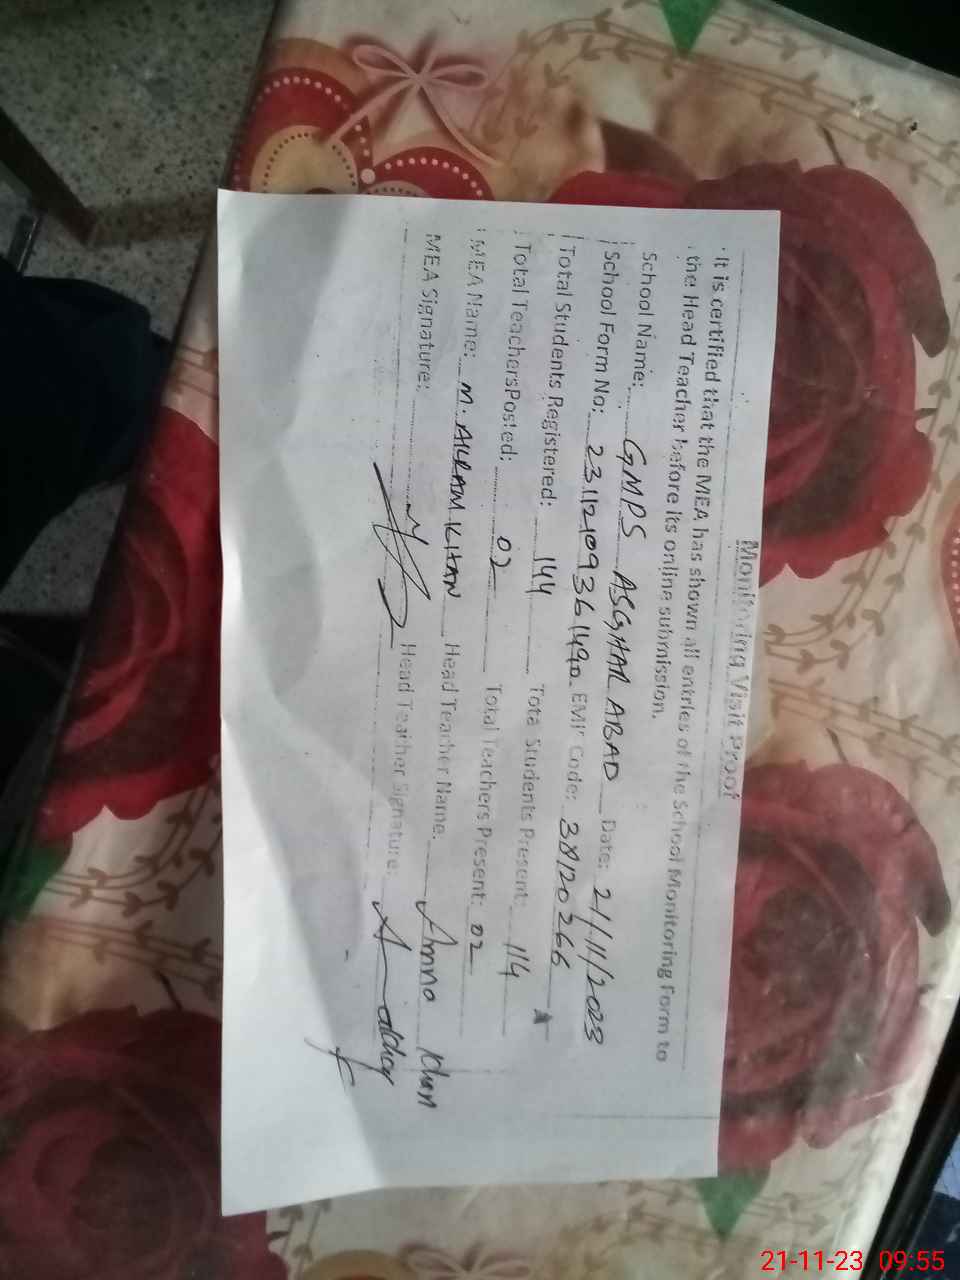 Monitoring Visit Proof
It is certified that the MEA has shown all entries of the School Monitoring Form to
the Head Teacher before its online submission.
School Name: GMPS ASGHAR ABAD Date: 21/11/2023
School Form No: EMIS Code: 38120266
Total Students Registered: 144 Total Students Present: 114
Total Teachers Posted: 02 Total Teachers Present: 02
MEA Name: M. AKRAM KHAN Head Teacher Name: Amna Khan
MEA Signature: Head Teacher Signature:
21-11-23 09:55